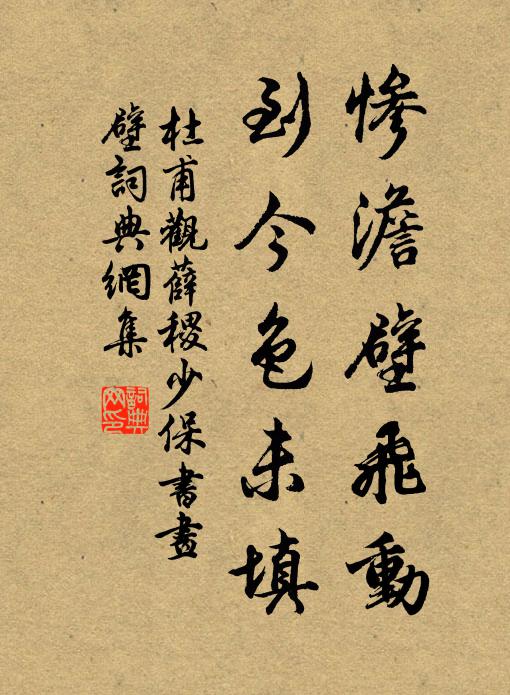 慘澹壁飛動
到今色未填
杜甫觀薛稷少保書畫
壁詞典網集
詞典
网印